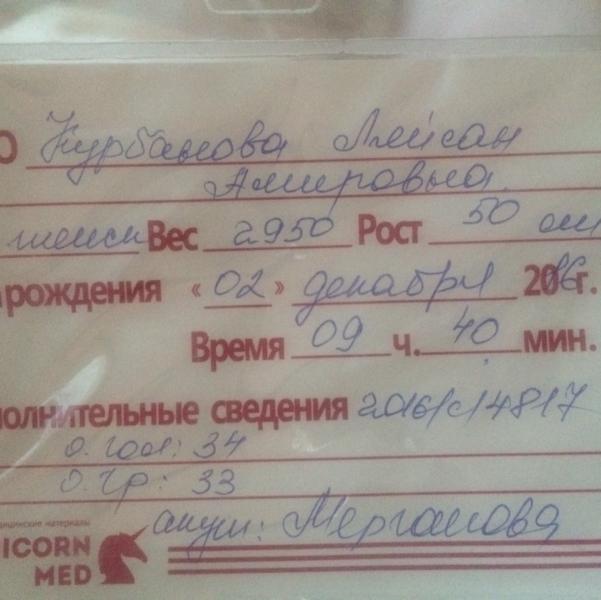 О Курбанова Ляйсан
Амировна
женск Вес 2950 Рост 50 см
рождения «02» декабря 2016 г.
Время 09 ч. 40 мин.
полнительные сведения 2016/с/14817
о. гол: 34
о. гр: 33
дицинские материалы
акуш: Мерганова
ICORN
MED